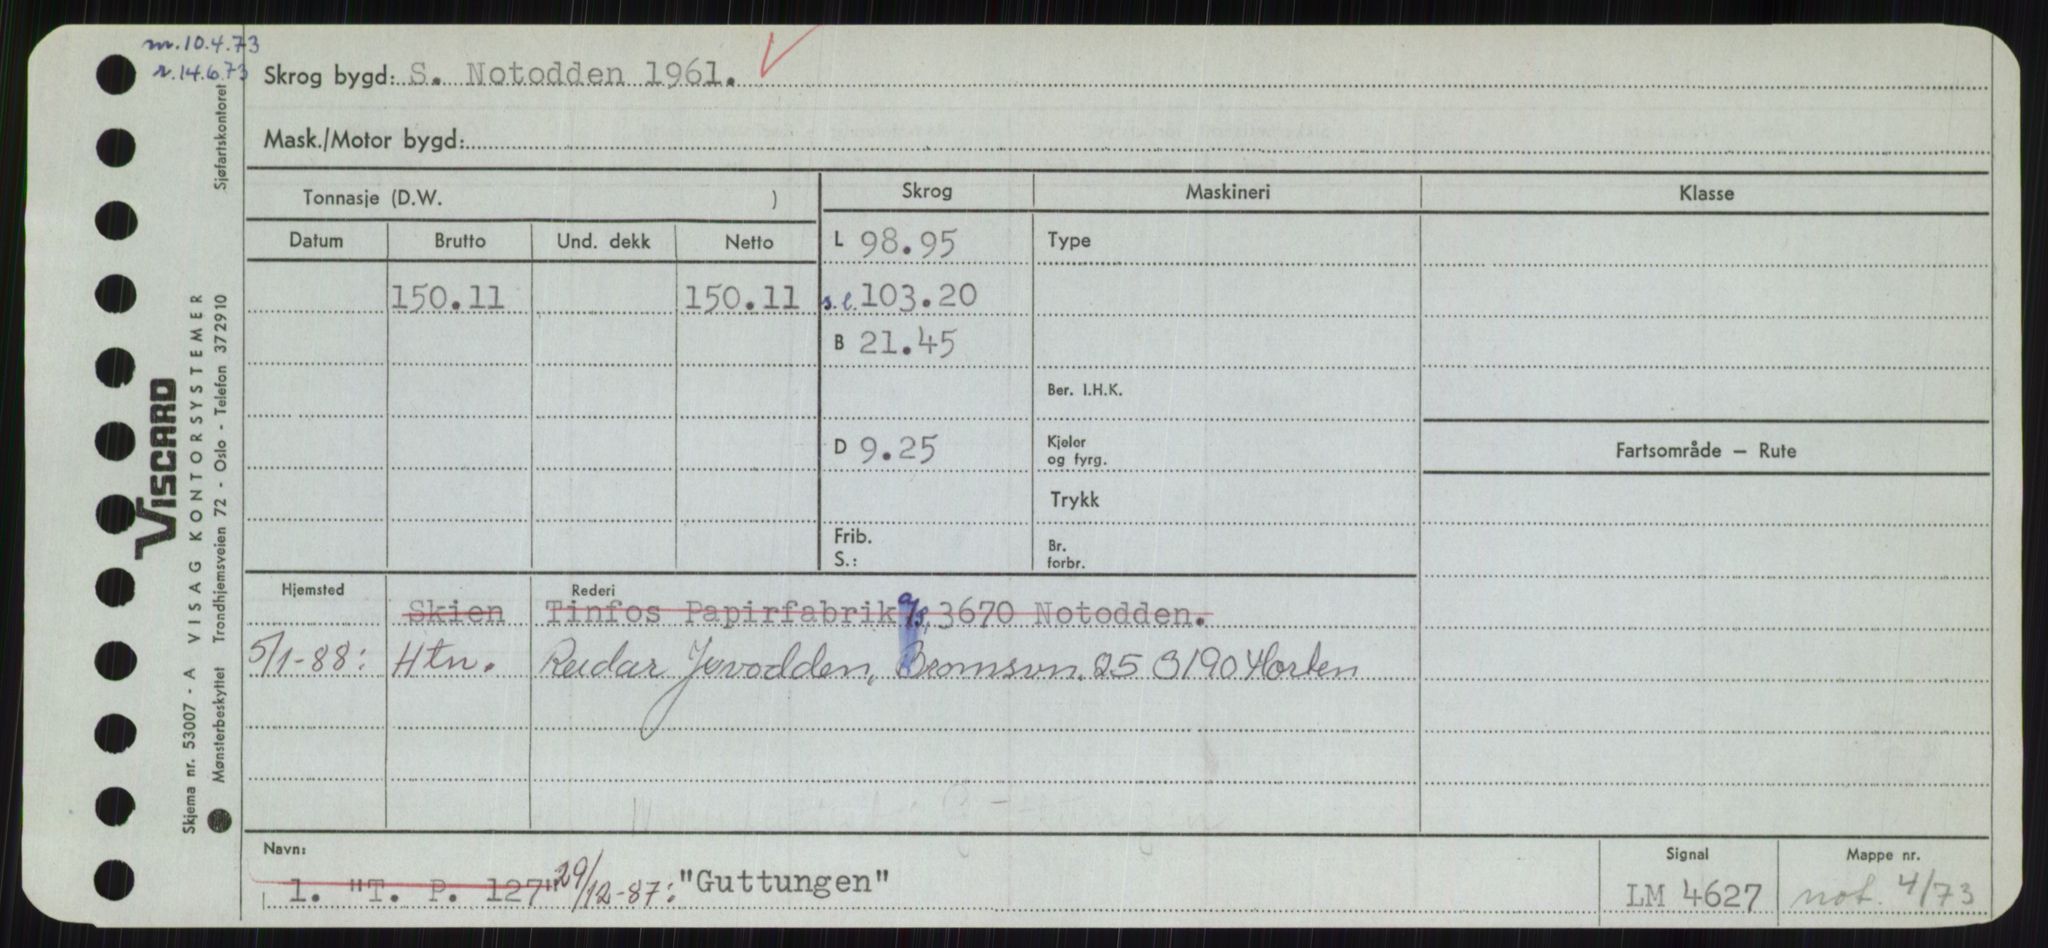 m. 10.4.73
r. 14.6.73
Skrog bygd: S. Notodden 1961.
Mask./Motor bygd:
Tonnasje (D.W. )
Skrog
Maskineri
Klasse
Datum
Brutto
Und. dekk
Netto
L 98.95
Type
150.11
150.11
s.l. 103.20
B 21.45
Ber. I.H.K.
D 9.25
Kjeler
og fyrg.
Fartsområde – Rute
Trykk
Frib.
S.:
Br.
forbr.
Hjemsted
Rederi
Skien
Tinfos Papirfabrik A/S, 3670 Notodden.
5/1-88:
Htn.
Reidar Jevodden, Bromsvn. 25 3190 Horten
Navn:
1. "T. P. 127" 29/12-87: "Guttungen"
Signal
LM 4627
Mappe nr.
not. 4/73
Sjøfartskontoret
VISCARD
VISAG KONTORSYSTEMER
Trondhjemsveien 72 - Oslo - Telefon 372910
Skjema nr. 53007 - A
Mønsterbeskyttet